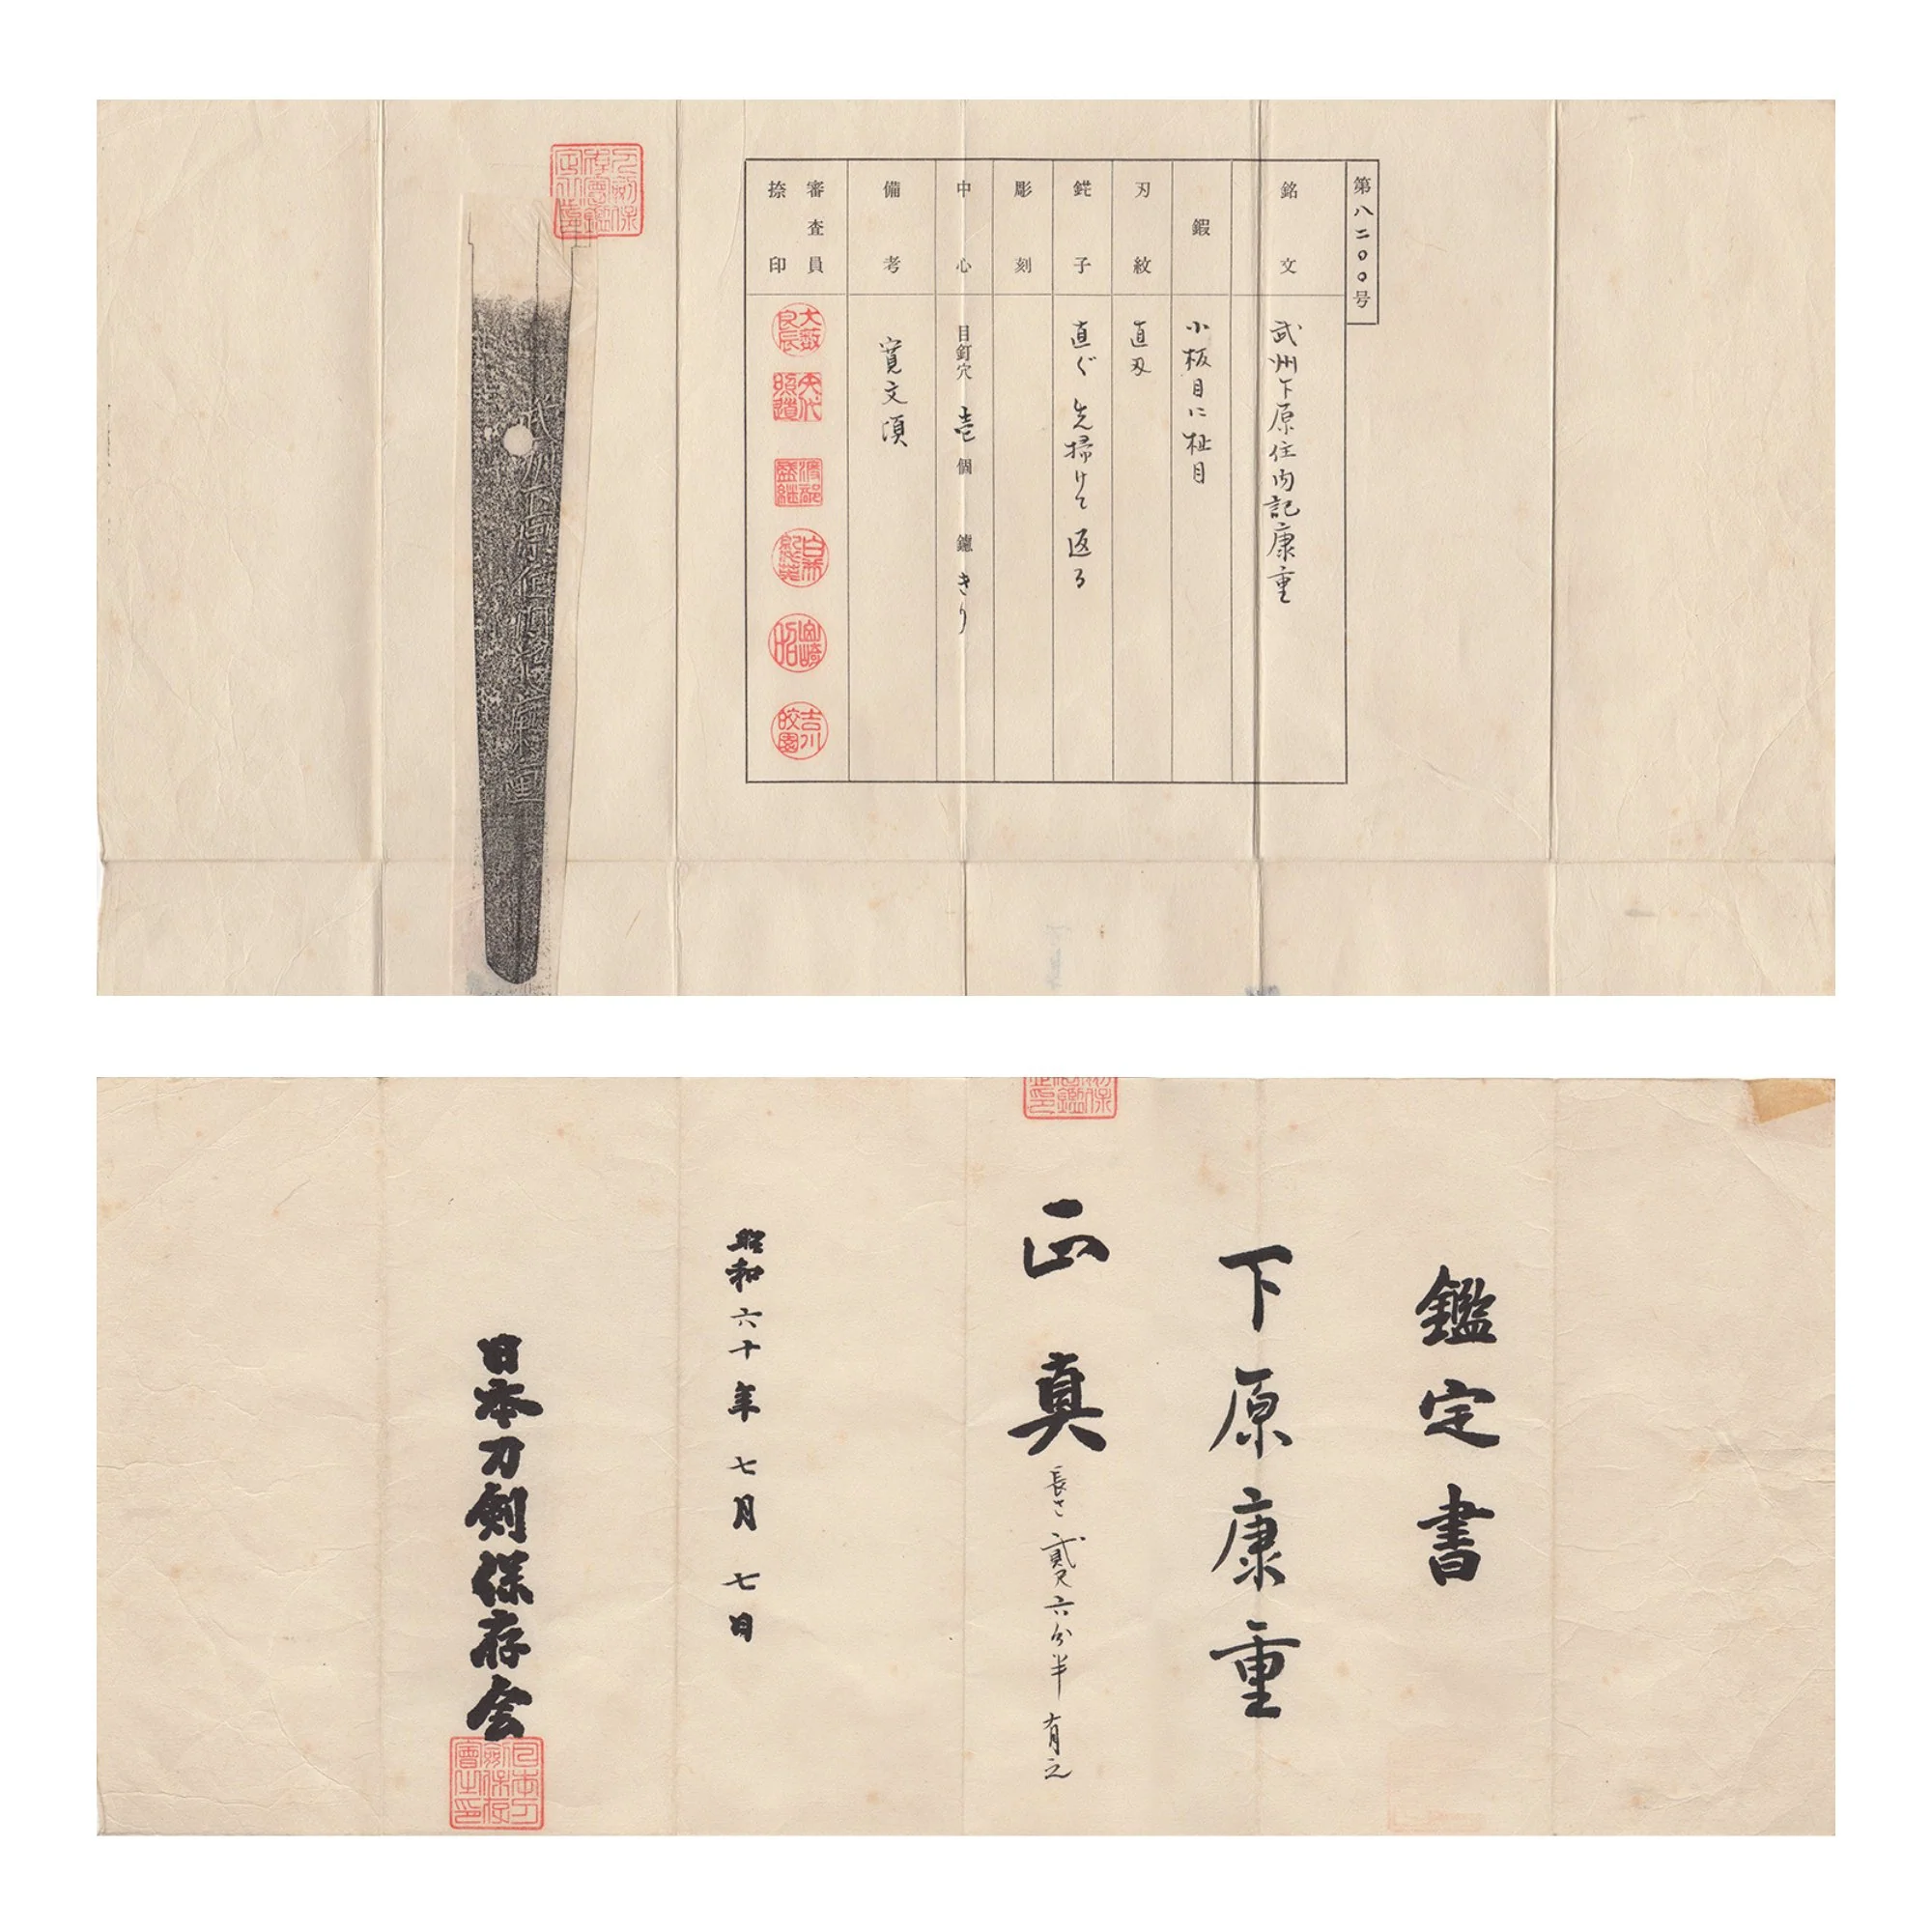 第八二〇〇号
銘文
武州下原住内記康重
鍜
小板目に柾目
刃紋
直刃
鋩子
直ぐ先掃けて返る
彫刻
中心
目釘穴 壱個 鑢 きり
備考
寛文頃
審査員
捺印
武州下原住内記康重
鑑定書
下原康重
正真
長さ 貳尺六分半 有之
昭和六十年七月七日
日本刀剣保存会